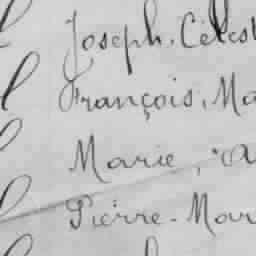 Joseph, Célest
François, Ma
Marie,
Pierre-Mar